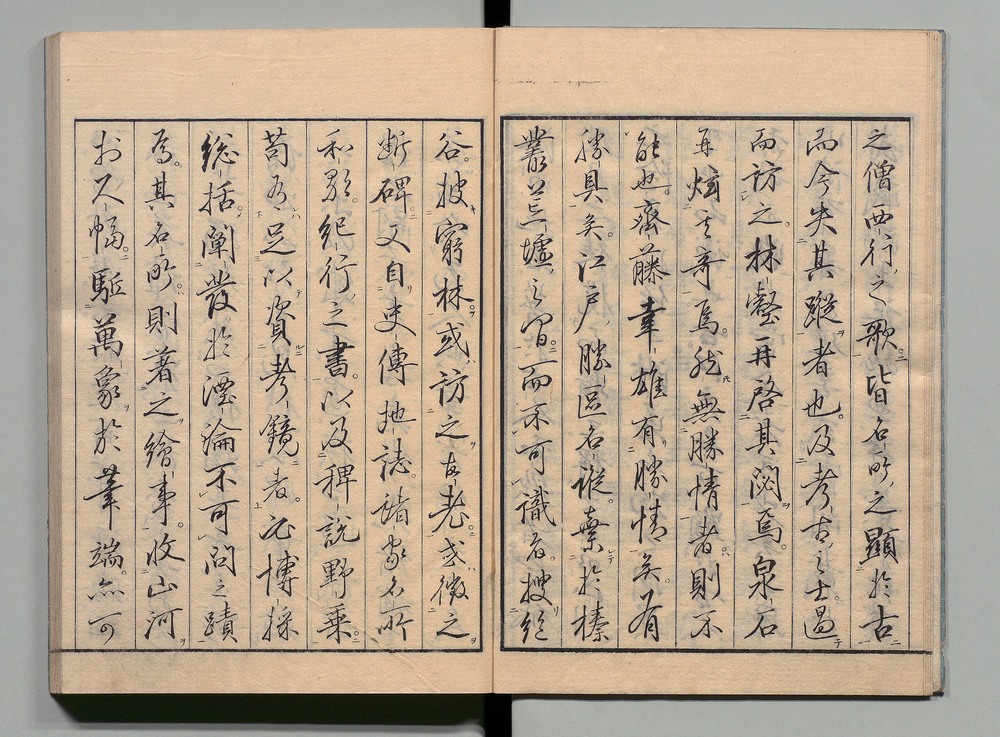 之僧西行之歌皆名所之顯於古
而今失其蹤者也及考古之士過
而訪之林壑再啓其閟焉泉石
再炫其奇焉然無勝情者則不
能也齊藤幸雄有勝情矣有
勝具矣江戸勝區名蹤棄於榛
叢荒墟之間而不可識者搜絶
谷披窮林或訪之故老或徴之
斷碑又自史傳地誌諸家名所
和歌紀行之書以及稗説野乘
苟有足以資考鏡者必博採
總括闡發於湮淪不可問之蹟
焉其名所則著之繪事收山河
於尺幅駈萬象於筆端亦可